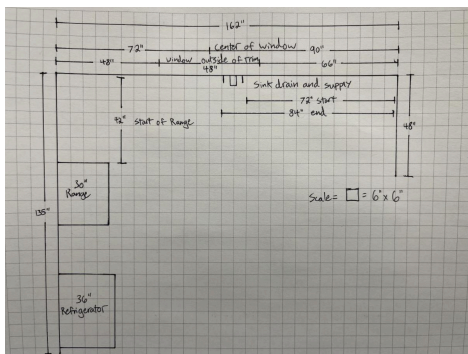 162"
72" center of window 90"
48" window outside of trim 66"
48"
Sink drain and supply
72" start
84" end
72" start of Range
48"
30"
Range
Scale = = 6" x 6"
135"
36"
Refrigerator